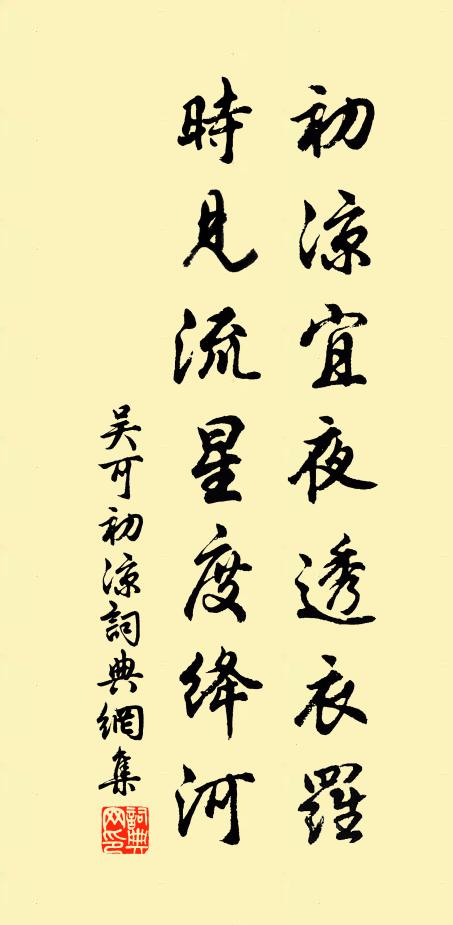 初涼宜夜透衣羅
時見流星度絳河
吳可初涼詞典網集
詞典網印